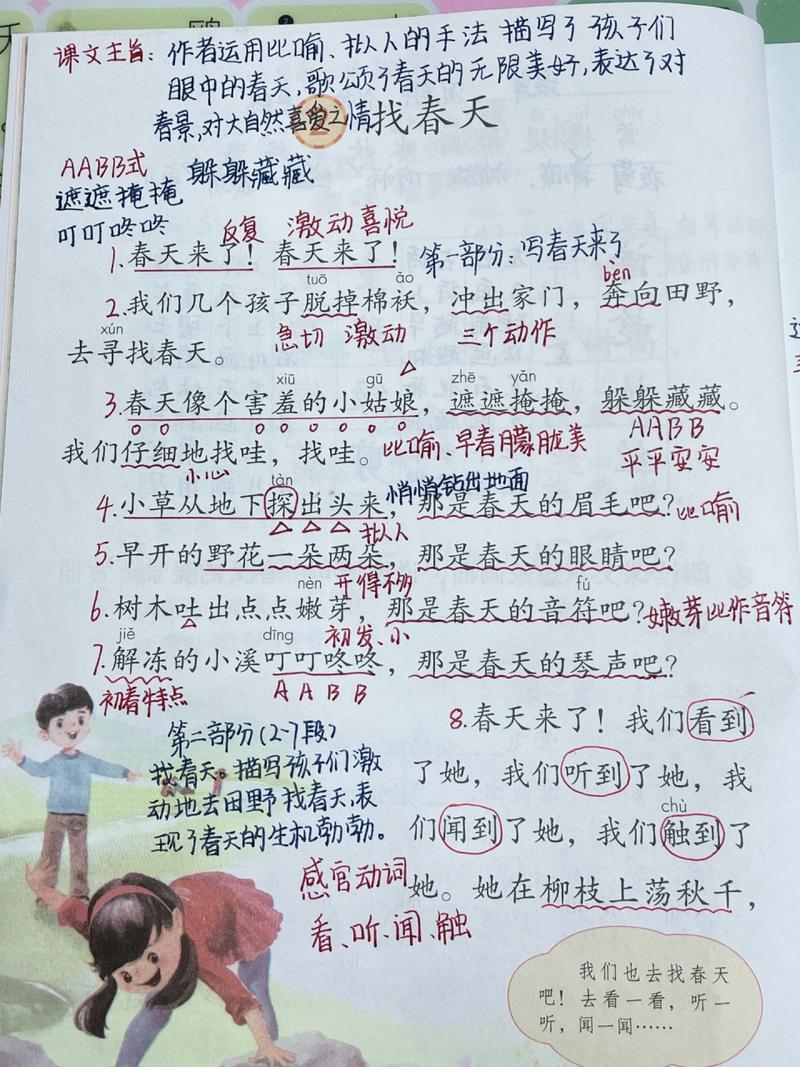 课文主旨：作者运用比喻、拟人的手法描写了孩子们
眼中的春天，歌颂了春天的无限美好，表达了对
春景，对大自然喜爱之情
2 找春天
AABB式
遮遮掩掩 躲躲藏藏
叮叮咚咚
反复 激动喜悦
1.春天来了！春天来了！ 第一部分：写春天来了
tuō ǎo bēn
2.我们几个孩子脱掉棉袄，冲出家门，奔向田野，
xún 急切 激动 三个动作
去寻找春天。
xiū gū zhē yǎn
3.春天像个害羞的小姑娘，遮遮掩掩，躲躲藏藏。
我们仔细地找哇，找哇。 比喻、早春朦胧美 AABB
平平安安
小心 tàn 悄悄钻出地面
4.小草从地下探出头来，那是春天的眉毛吧？比喻
拟人
5.早开的野花一朵两朵，那是春天的眼睛吧？
nèn 开得不多 fú
6.树木吐出点点嫩芽，那是春天的音符吧？嫩芽比作音符
jiě dīng 初发、小
7.解冻的小溪叮叮咚咚，那是春天的琴声吧？
初春特点 AABB
第二部分（2-7段）
找春天。描写孩子们激
动地去田野找春天，表
现了春天的生机勃勃。
8.春天来了！我们看到
了她，我们听到了她，我
chù
们闻到了她，我们触到了
她。她在柳枝上荡秋千，
感官动词
看、听、闻、触
我们也去找春天
吧！去看一看，听一
听，闻一闻……